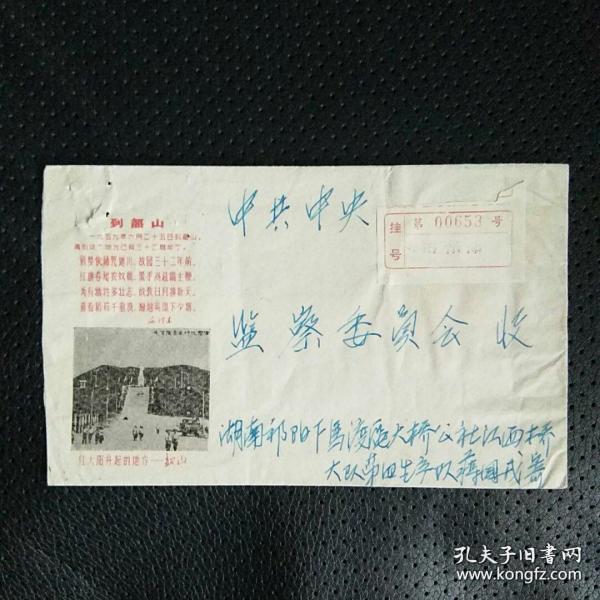 到韶山
一九五九年六月二十五日到韶山。
离别这个地方已有三十二周年了。
别梦依稀咒逝川，故园三十二年前。
红旗卷起农奴戟，黑手高悬霸主鞭。
为有牺牲多壮志，敢教日月换新天。
喜看稻菽千重浪，遍地英雄下夕烟。
毛泽东
红太阳升起的地方——韶山
中共中央
监察委员会 收
挂号
第 00653 号
湖南祁阳下马渡区大桥公社江西桥
大队第四生产队蒋国
孔夫子旧书网
www.kongfz.com